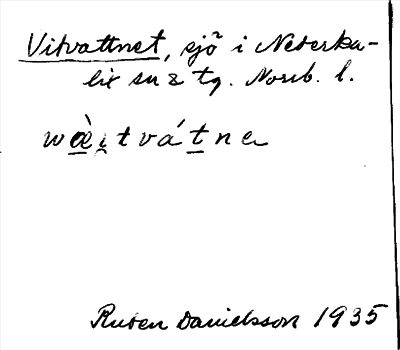 Vitvattnet, sjö i Nederka-
lix sn & tg. Norrb. l.
wæ̀i̯tvátnɐ
Ruben Danielsson 1935